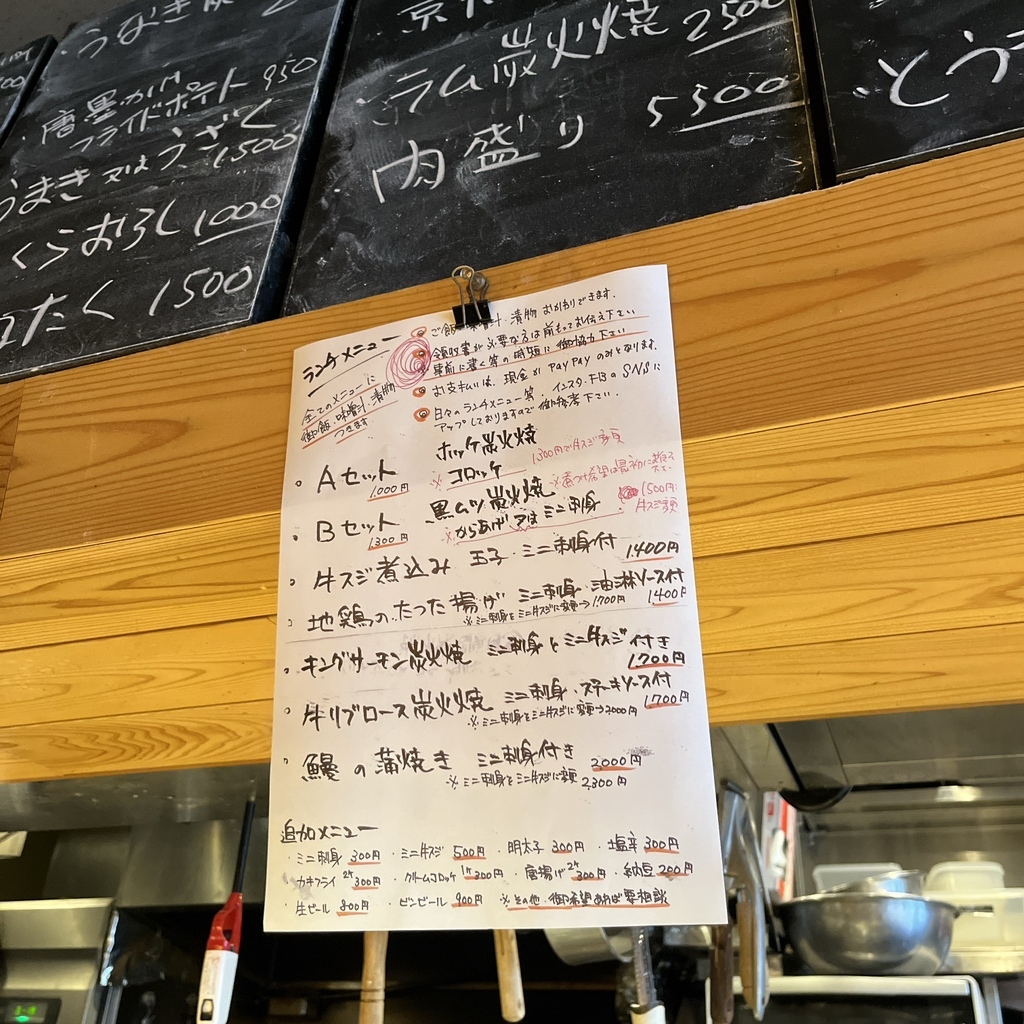 うなぎ
唐墨かけ
フライドポテト 950
うまき 又は うざく
1500
くらおろし 1000
たく 1500
ラム炭火焼 2500
肉盛り 5500
とう
ランチメニュー
全てのメニューに
御飯、味噌汁、漬物
つきます
ご飯・味噌汁・漬物 おかわりできます.
領収書が必要な方は前もってお伝え下さい
事前に書く等の時短に御協力下さい
お支払いは、現金か PAYPAY のみとなります.
日々のランチメニュー等、インスタ・FBのSNSに
アップしておりますので御参考下さい.
Aセット 1,000円
ホッケ炭火焼
※ コロッケ
1,300円で牛スジ変更
Bセット 1,300円
黒ムツ炭火焼
※ からあげ 又は ミニ刺身
1,500円
牛スジ変更
牛スジ煮込み 玉子・ミニ刺身付 1,400円
地鶏のたった揚げ ミニ刺身・油淋ソース付 1,400円
※ミニ刺身とミニ牛スジに変更→1,700円
キングサーモン炭火焼 ミニ刺身とミニ牛スジ付き 1,700円
牛リブロース炭火焼 ミニ刺身・ステーキソース付 1,700円
※ミニ刺身とミニ牛スジに変更→2000円
鰻の蒲焼き ミニ刺身付き 2,000円
※ミニ刺身とミニ牛スジに変更 2,300円
追加メニュー
・ミニ刺身 300円 ・ミニ牛スジ 500円 ・明太子 300円 ・塩辛 300円
カキフライ 2ヶ 300円 ・クリームコロッケ 1ケ 300円 ・唐揚げ 2ケ 300円 ・納豆 200円
生ビール 800円 ・ビンビール 900円 ※その他・御希望あれば要相談